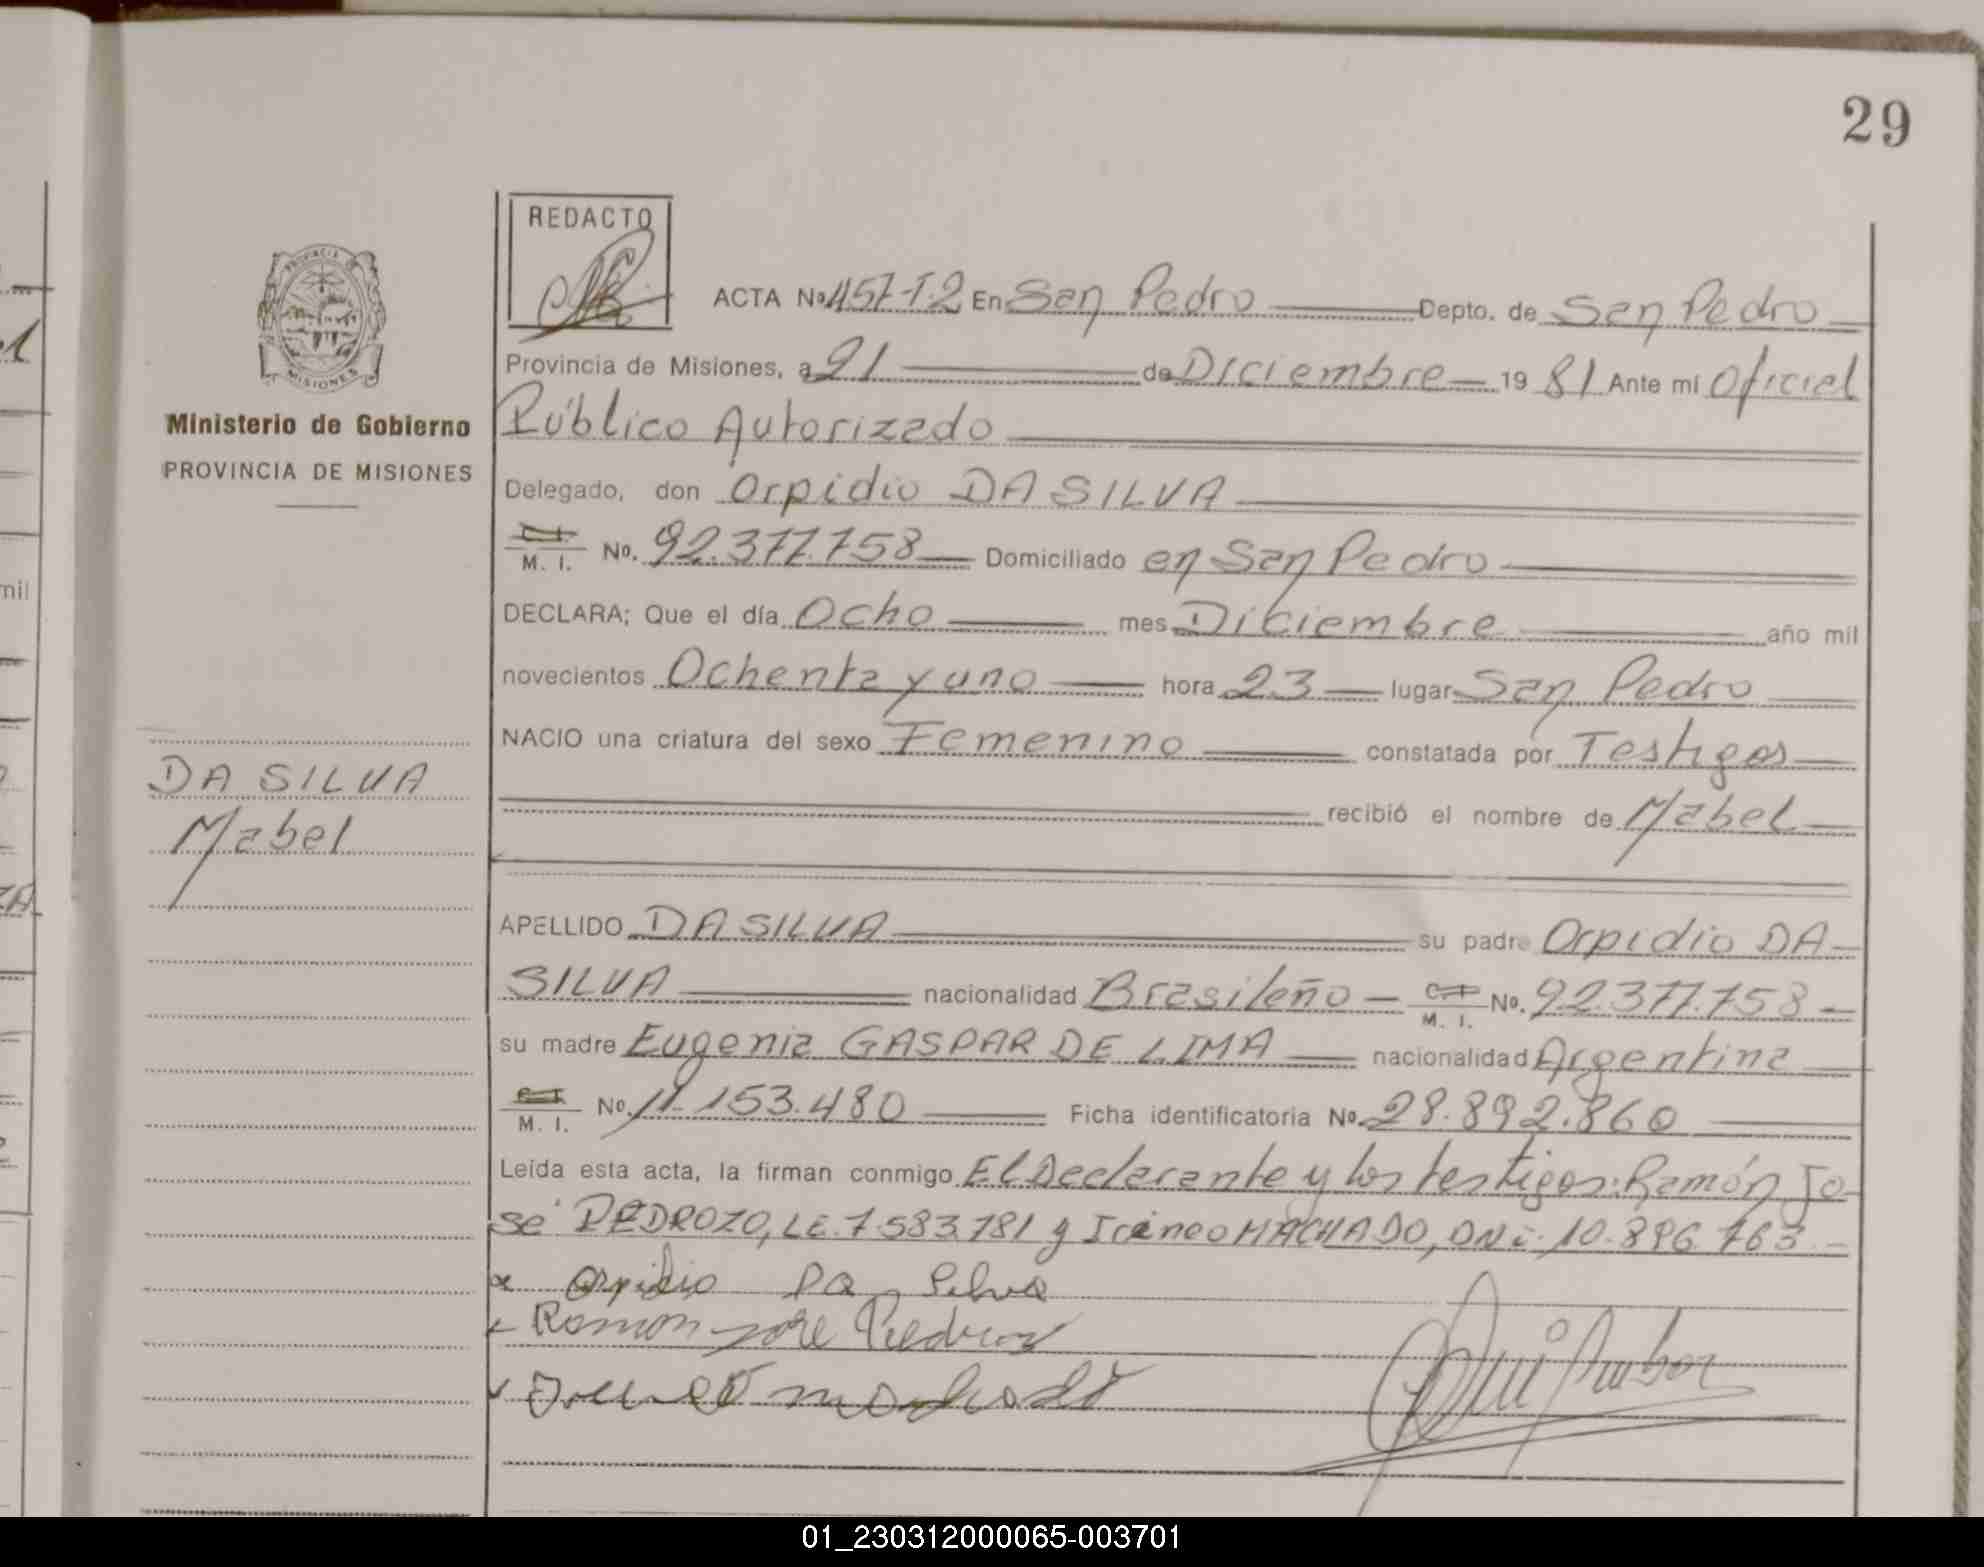 29
REDACTO
ACTA No. 457-T.2 En San Pedro Depto. de San Pedro
Provincia de Misiones, a 21 de Diciembre 19 81 Ante mi Oficial
Público Autorizado
Delegado, don Orpidio DA SILVA
M. I. No. 92.377.758 Domiciliado en San Pedro
DECLARA; Que el día Ocho mes Diciembre año mil
novecientos Ochenta y uno hora 23 lugar San Pedro
NACIO una criatura del sexo Femenino constatada por Testigos
recibió el nombre de Mabel
APELLIDO DA SILVA su padre Orpidio DA
SILVA nacionalidad Brasileño C.I. M. I. No. 92.377.758
su madre Eugenia GASPAR DE LIMA nacionalidad Argentina
C.I. M. I. No. 11.153.480 Ficha identificatoria No. 28.892.860
Leída esta acta, la firman conmigo El Declarante y los testigos: Ramón Jo-
sé PEDROZO, LE. 7.583.781 y Irineo MACHADO, DNi. 10.896.763
Orpidio Da Silva
Ramon Jose Pedrozo
PROVINCIA DE
MISIONES
Ministerio de Gobierno
PROVINCIA DE MISIONES
DA SILVA
Mabel
mil
01_230312000065-003701